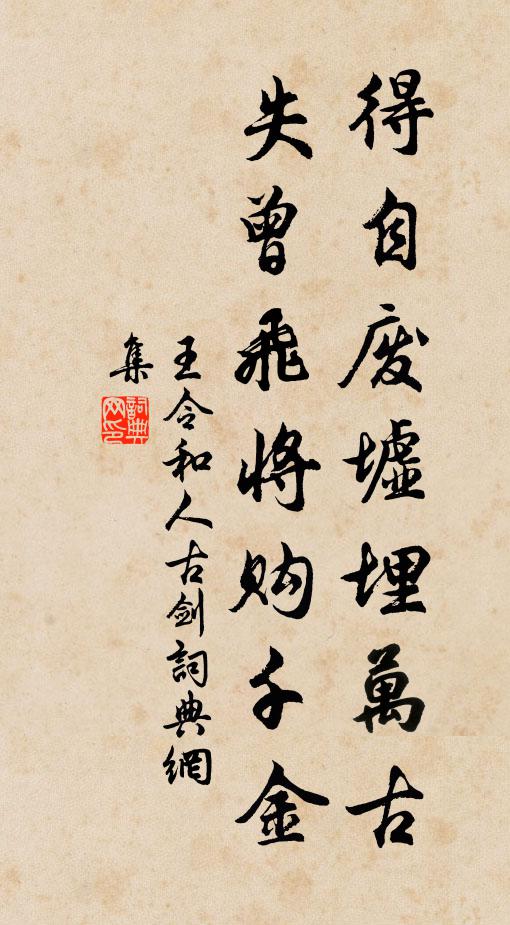 得自废墟埋萬古
失曾飛將购千金
王令和人古剑詞典網
集
詞典网印